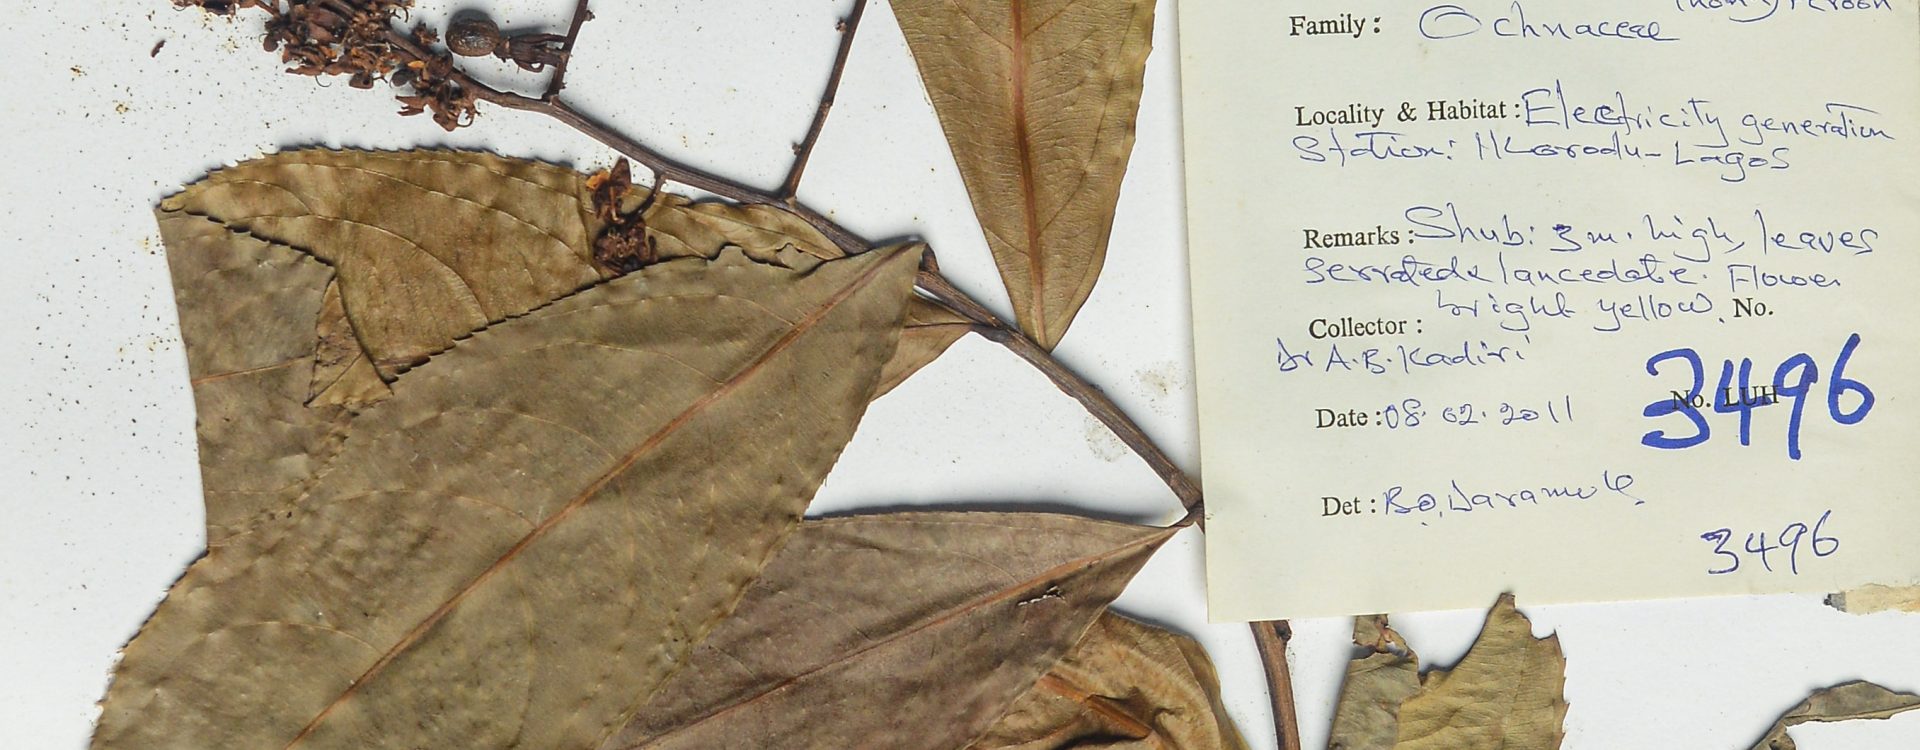 Family: Ochnaceae
Locality & Habitat: Electricity generation
Station: Ikorodu - Lagos
Remarks: Shub: 3m. high, leaves
serrated & lancedate. Flower
bright yellow.
Collector: No.
Dr A.B. Kadiri
3496
No. LUH
Date: 08.02.2011
Det: B.O. Daramola
3496